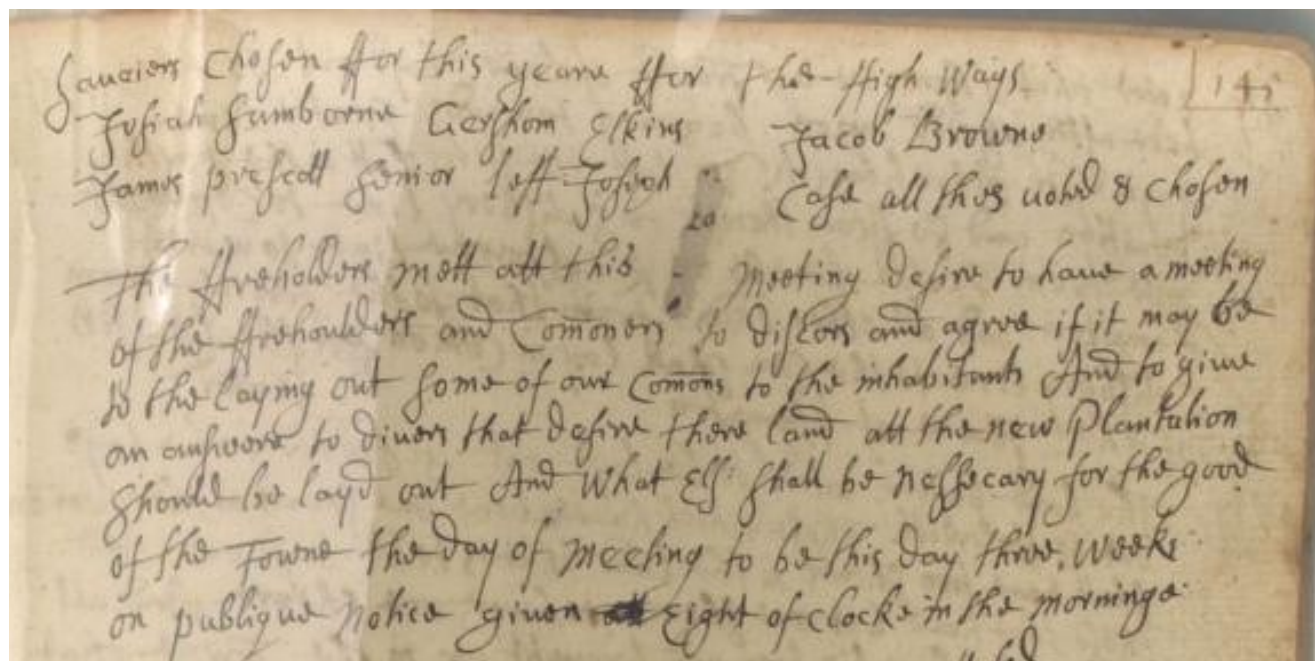 Saueiers Chosen ffor this yeare ffor the High Ways
141
Josiah Samborne Gershom Elkins Jacob Browne
James prescott Senior left Joseph Case all thes uoted & Chosen
20
The ffreholders mett att this meeting desire to haue a meeting
of the ffrehoulders and Com̄oners to discors and agree if it may be
to the laying out some of our Com̄ons to the inhabitants And to giue
an answere to diuers that desire there land att the new Plantation
should be layd out And What Els shall be nessecary for the good
of the Towne the day of meeting to be this day three weeks
on publique notice given Eight of clocke in the morninge